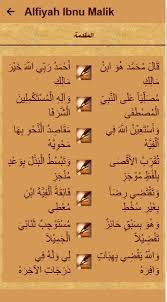 Alfiyah Ibnu Malik
المقدمة
قَالَ مُحَمَّد هُوَ ابنُ
مَالِكِ
أَحْمَدُ رَبِّي اللَّهَ خَيْرَ
مَالِكِ
مُصَلِّيَاً عَلَى النَّبِيِّ
الْمُصْطَفَى
وَآلِهِ الْمُسْتَكْمِلِينَ
الْشَّرَفَا
وَأَسْتَعِينُ اللَّهَ فِي
أَلْفِيَّهْ
مَقَاصِدُ النَّحْوِ بِهَا
مَحْوِيَّهْ
تُقَرِّبُ الأَقْصَى
بِلَفْظٍ مُوجَزِ
وَتَبْسُطُ الْبَذْلَ بِوَعْدٍ
مُنْجَزِ
وَتَقْتَضِي رِضَاً
بِغَيْرِ سُخْطِ
فَائِقَةً أَلْفِيَّةَ ابْنِ
مُعْطِي
وَهْوَ بِسَبْقٍ حَائِزٌ
تَفْضِيلاً
مُسْتَوْجِبٌ ثَنَائِيَ
الْجَمِيلاَ
وَاللَّهُ يَقْضِي بِهِبَاتٍ
وَافِرَهْ
لِي وَلَهُ فِي
دَرَجَاتِ الآخِرَهْ